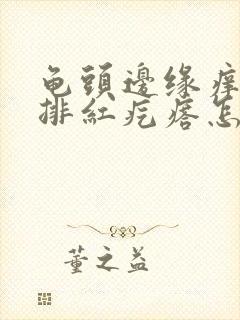 龟頭邊缘痒
排紅疙瘩怎
董之益